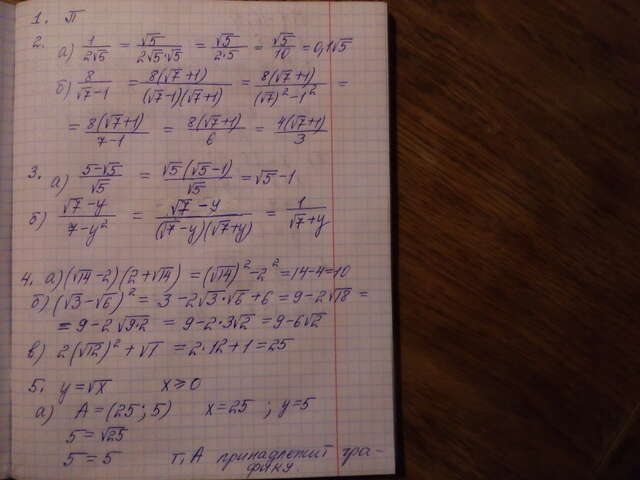 1. П
2. а) 1/(2√5) = √5/(2√5·√5) = √5/(2·5) = √5/10 = 0,1√5
б) 8/(√7-1) = 8(√7+1)/((√7-1)(√7+1)) = 8(√7+1)/((√7)²-1²) =
= 8(√7+1)/(7-1) = 8(√7+1)/6 = 4(√7+1)/3
3. а) (5-√5)/√5 = √5(√5-1)/√5 = √5-1
б) (√7-y)/(7-y²) = (√7-y)/((√7-y)(√7+y)) = 1/(√7+y)
4. а) (√14-2)(2+√14) = (√14)²-2² = 14-4=10
б) (√3-√6)² = 3-2√3·√6+6 = 9-2√18 =
= 9-2√9·2 = 9-2·3√2 = 9-6√2
в) 2(√12)²+√1 = 2·12+1=25
5. y=√x x≥0
а) A=(25;5) x=25 ; y=5
5=√25
5=5 т. А принадлежит гра-
фику.